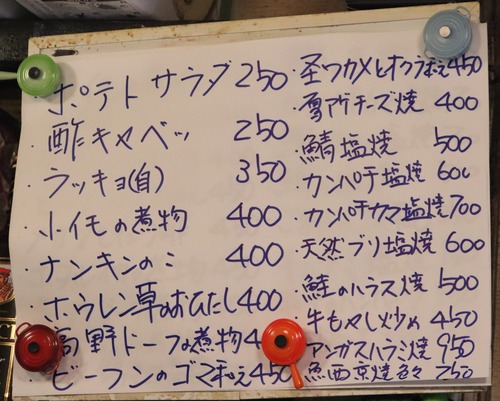 ・ポテトサラダ 250
・酢キャベツ 250
・ラッキョ(自) 350
・小イモの煮物 400
・ナンキンの〃 400
・ホウレン草のおひたし 400
高野ドーフの煮物 4
・ビーフンのゴマ和え 450
・茎ワカメとオクラ和え 450
・厚アゲチーズ焼 400
・鯖塩焼 500
・カンパチ塩焼 600
・カンパチカマ塩焼 700
・天然ブリ塩焼 600
・鮭のハラス焼 500
・牛もやし炒め 450
アンガスハラミ焼 950
魚西京焼色々 250